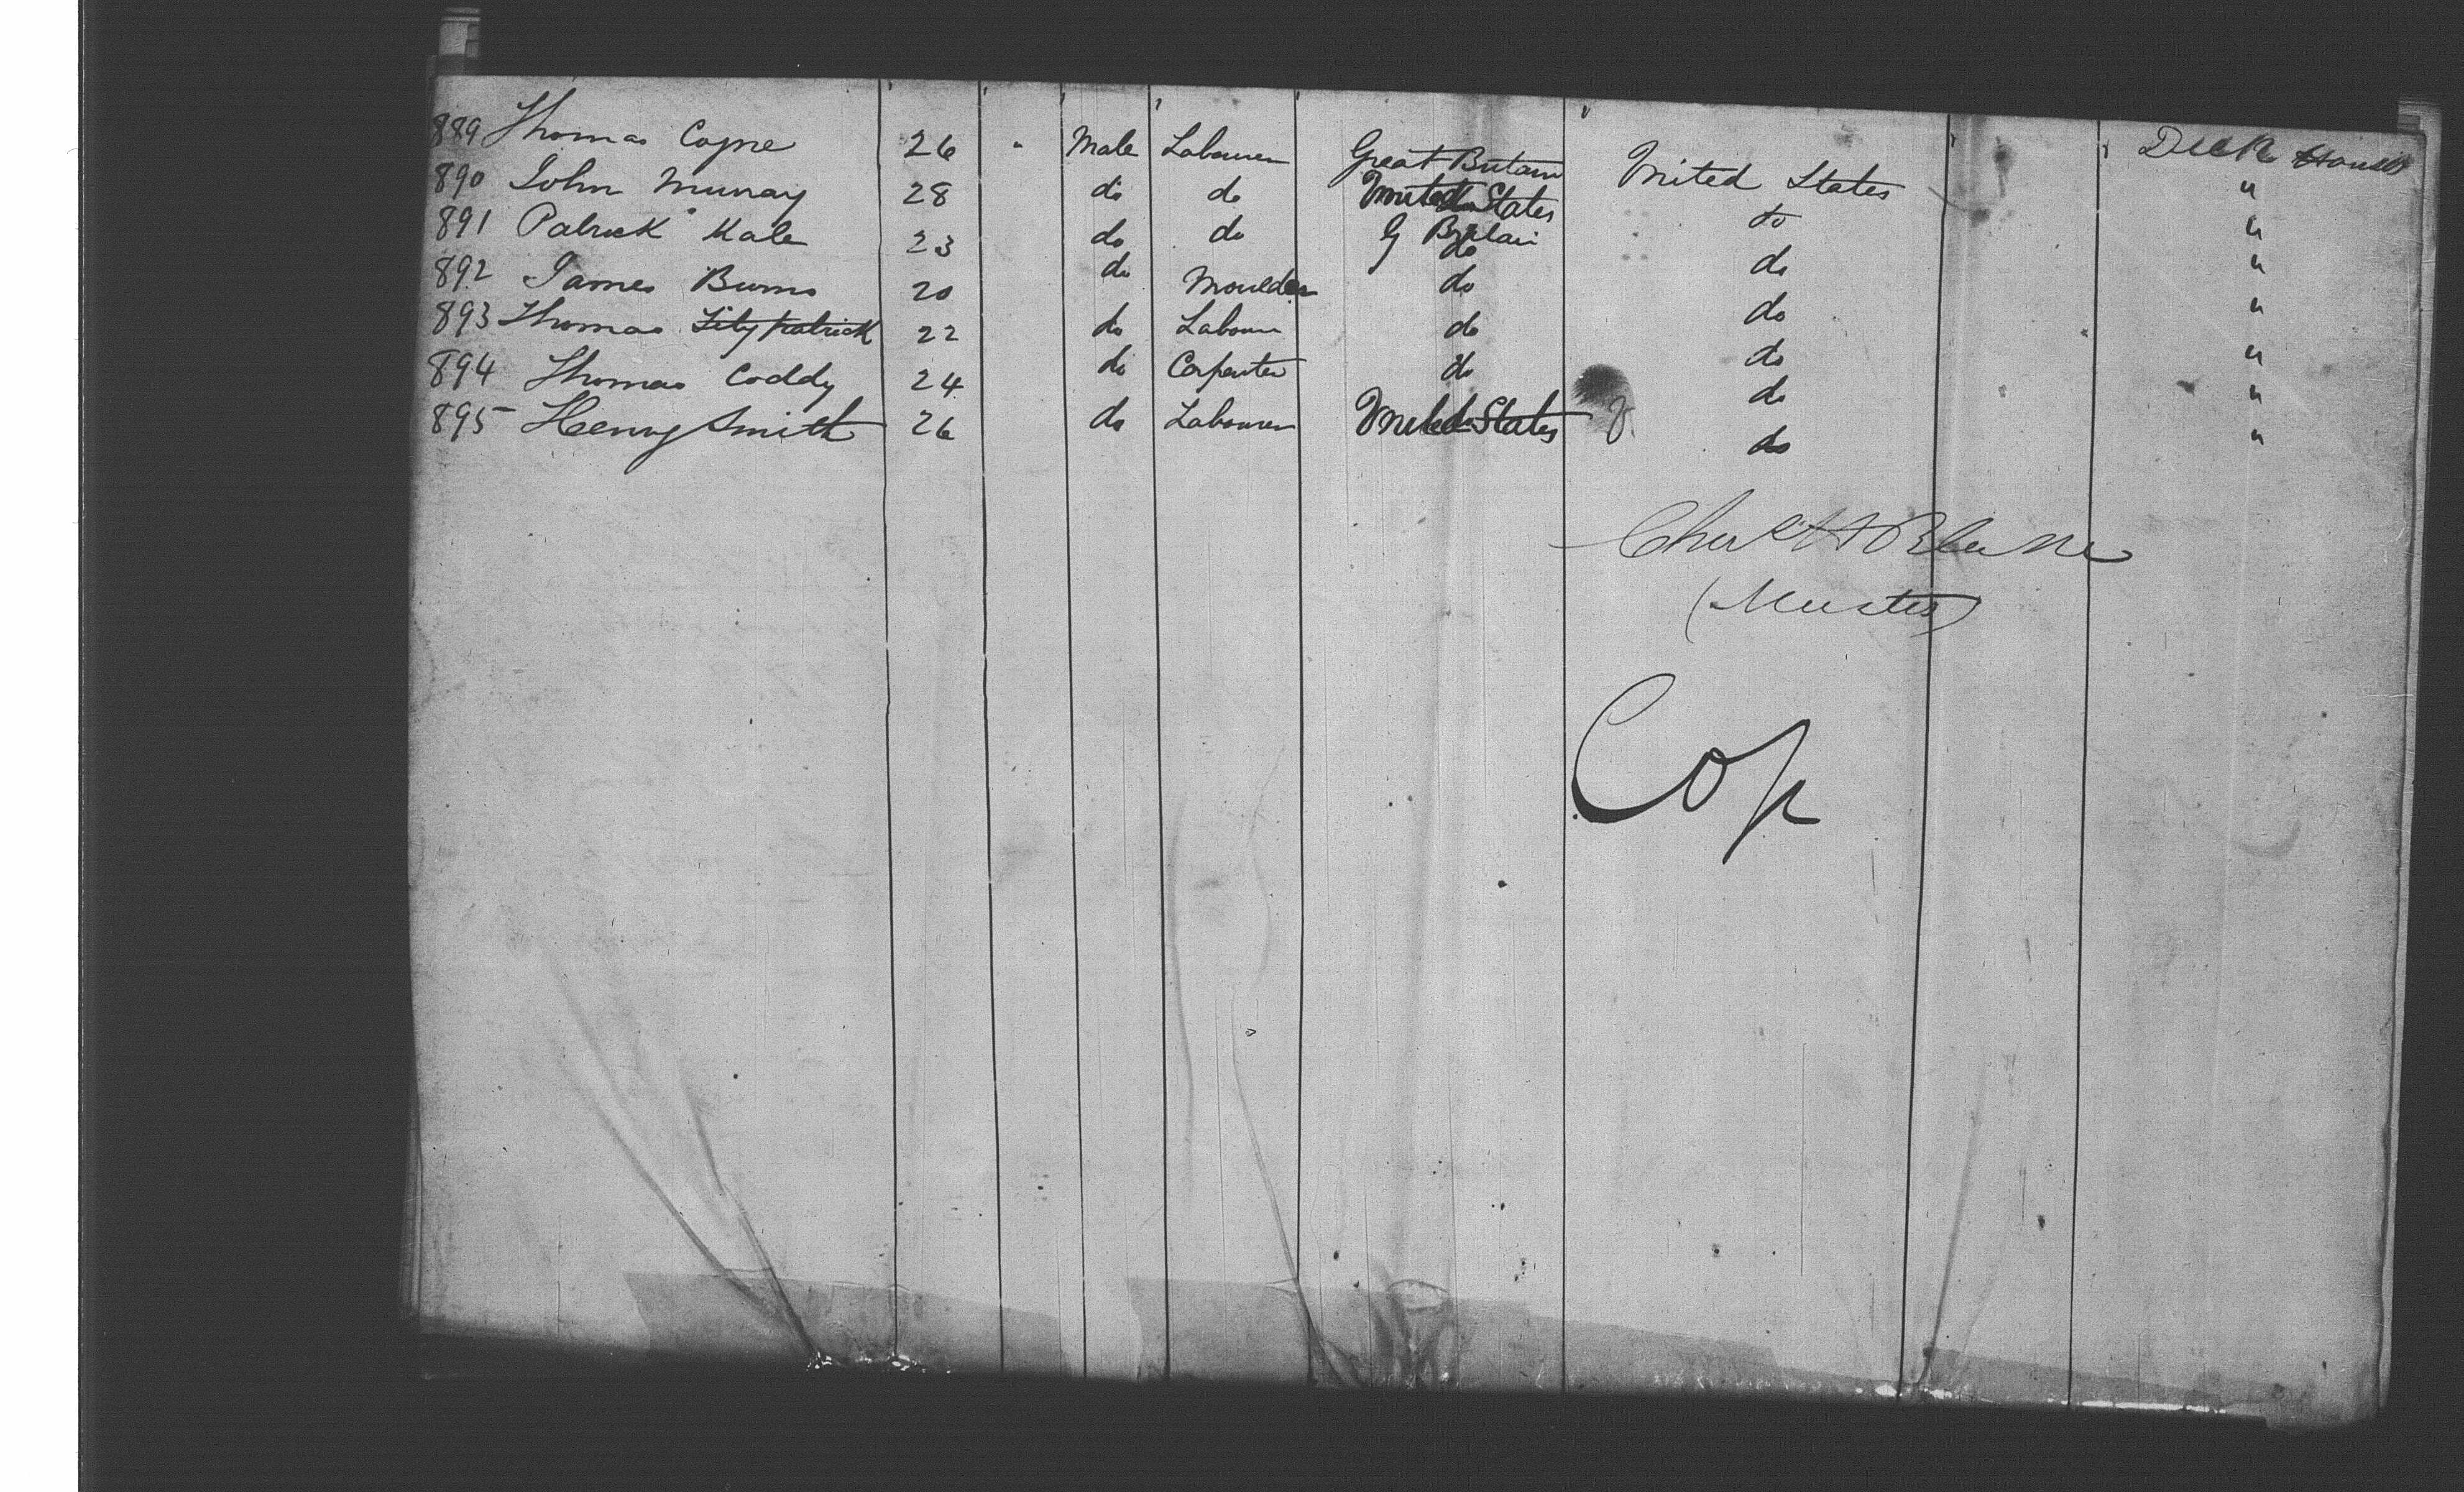 889 Thomas Coyne 26 " Male Labourer Great Britain United States Deck House
890 John Murray 28 do do United States do "
891 Patrick Kale 23 do do G Britain do "
892 James Burns 20 do Moulder do do "
893 Thomas Fitzpatrick 22 do Labourer do do "
894 Thomas Coddy 24 do Carpenter do do "
895 Henry Smith 26 do Labourer United States do "
(Master)
Cop